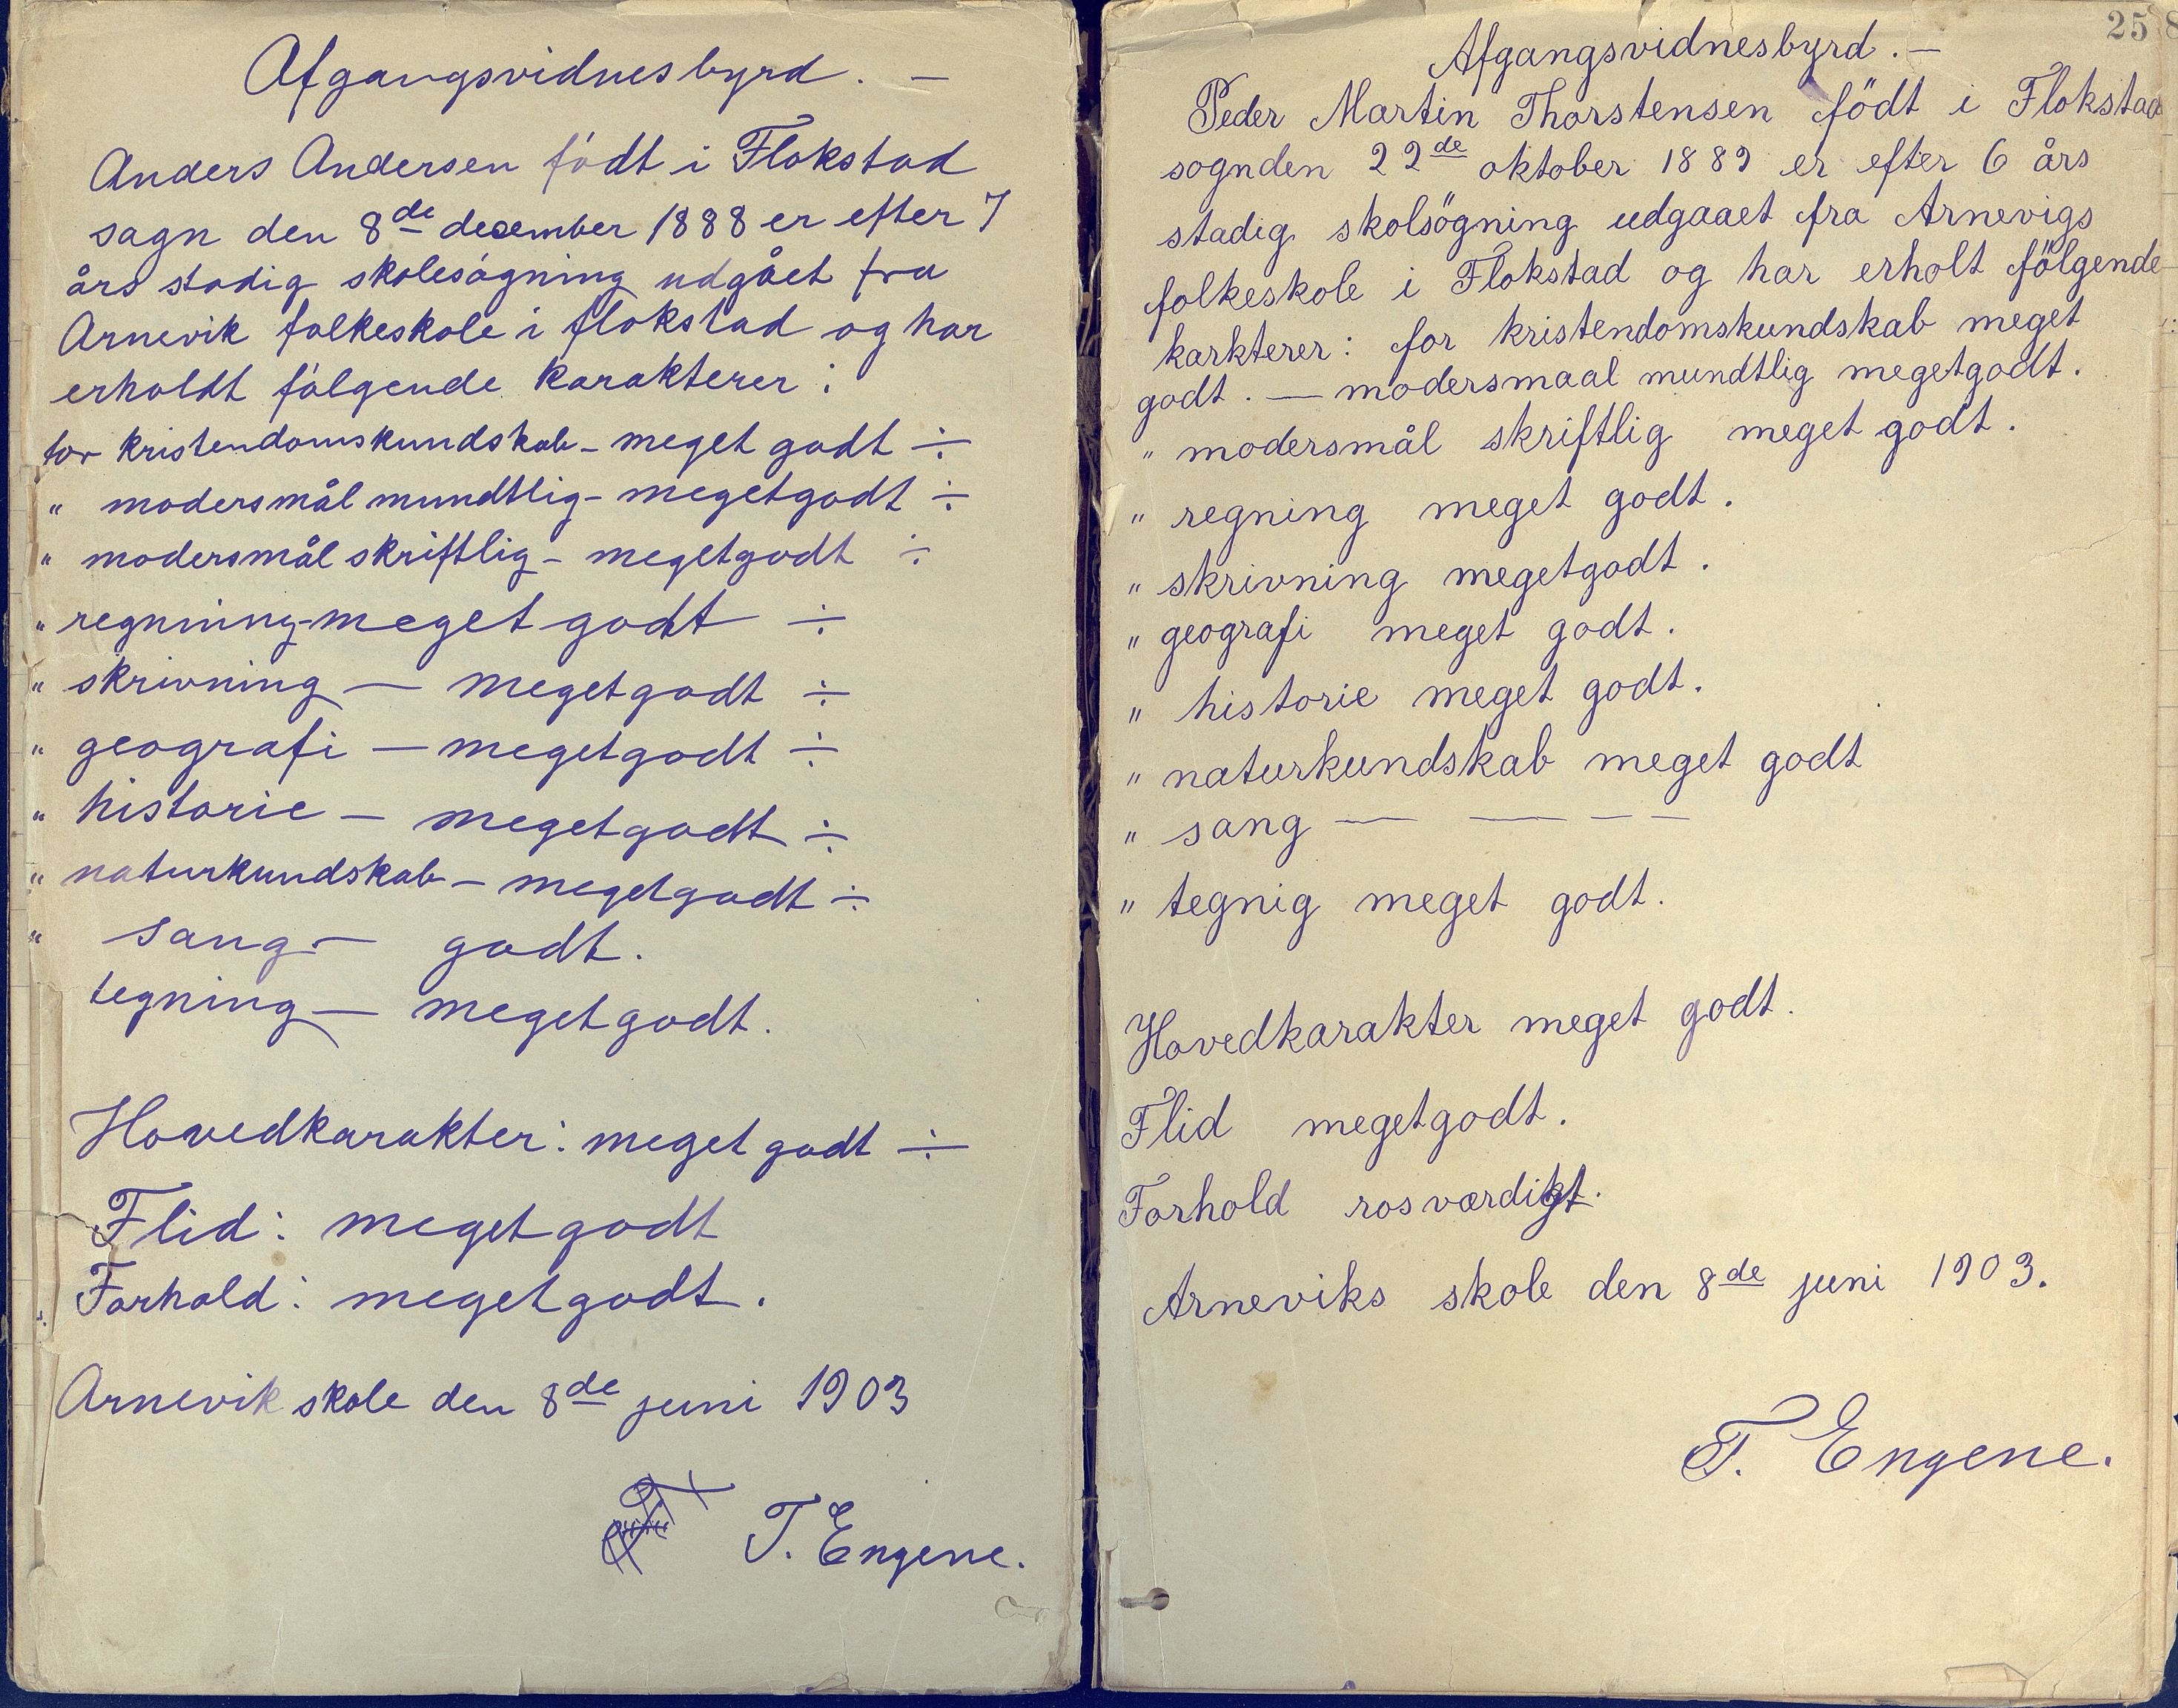 Afgangsvidnesbyrd. —
Anders Andersen födt i Flokstad
sogn den 8de december 1888 er efter 7
års stadig skolesögning udgået fra
Arnevik folkeskole i flokstad og har
erholdt fölgende karakterer:
for kristendomskundskab - meget godt ÷
" modersmål mundtlig - megetgodt ÷
" modersmål skriftlig - megetgodt ÷
" regning - meget godt ÷
" skrivning — megetgodt ÷
" geografi — megetgodt ÷
" historie — megetgodt ÷
" naturkundskab - megetgodt ÷
" sang — godt.
tegning — megetgodt.
Hovedkarakter: meget godt ÷
Flid: megetgodt
Forhold: megetgodt.
Arnevik skole den 8de juni 1903
T. Engene.
258
Afgangsvidnesbyrd. —
Peder Martin Thorstensen födt i Flokstad
sognden 22de oktober 1889 er efter 6 års
stadig skolsögning udgaaet fra Arnevigs
folkeskole i Flokstad og har erholt fölgende
karkterer: for kristendomskundskab meget
godt. — modersmaal mundtlig megetgodt.
" modersmål skriftlig meget godt.
" regning meget godt.
" skrivning megetgodt.
" geografi meget godt.
" historie meget godt.
" naturkundskab meget godt
" sang — — — —
" tegnig meget godt.
Hovedkarakter meget godt.
Flid megetgodt.
Forhold rosværdigt.
Arneviks skole den 8de juni 1903.
T. Engene.